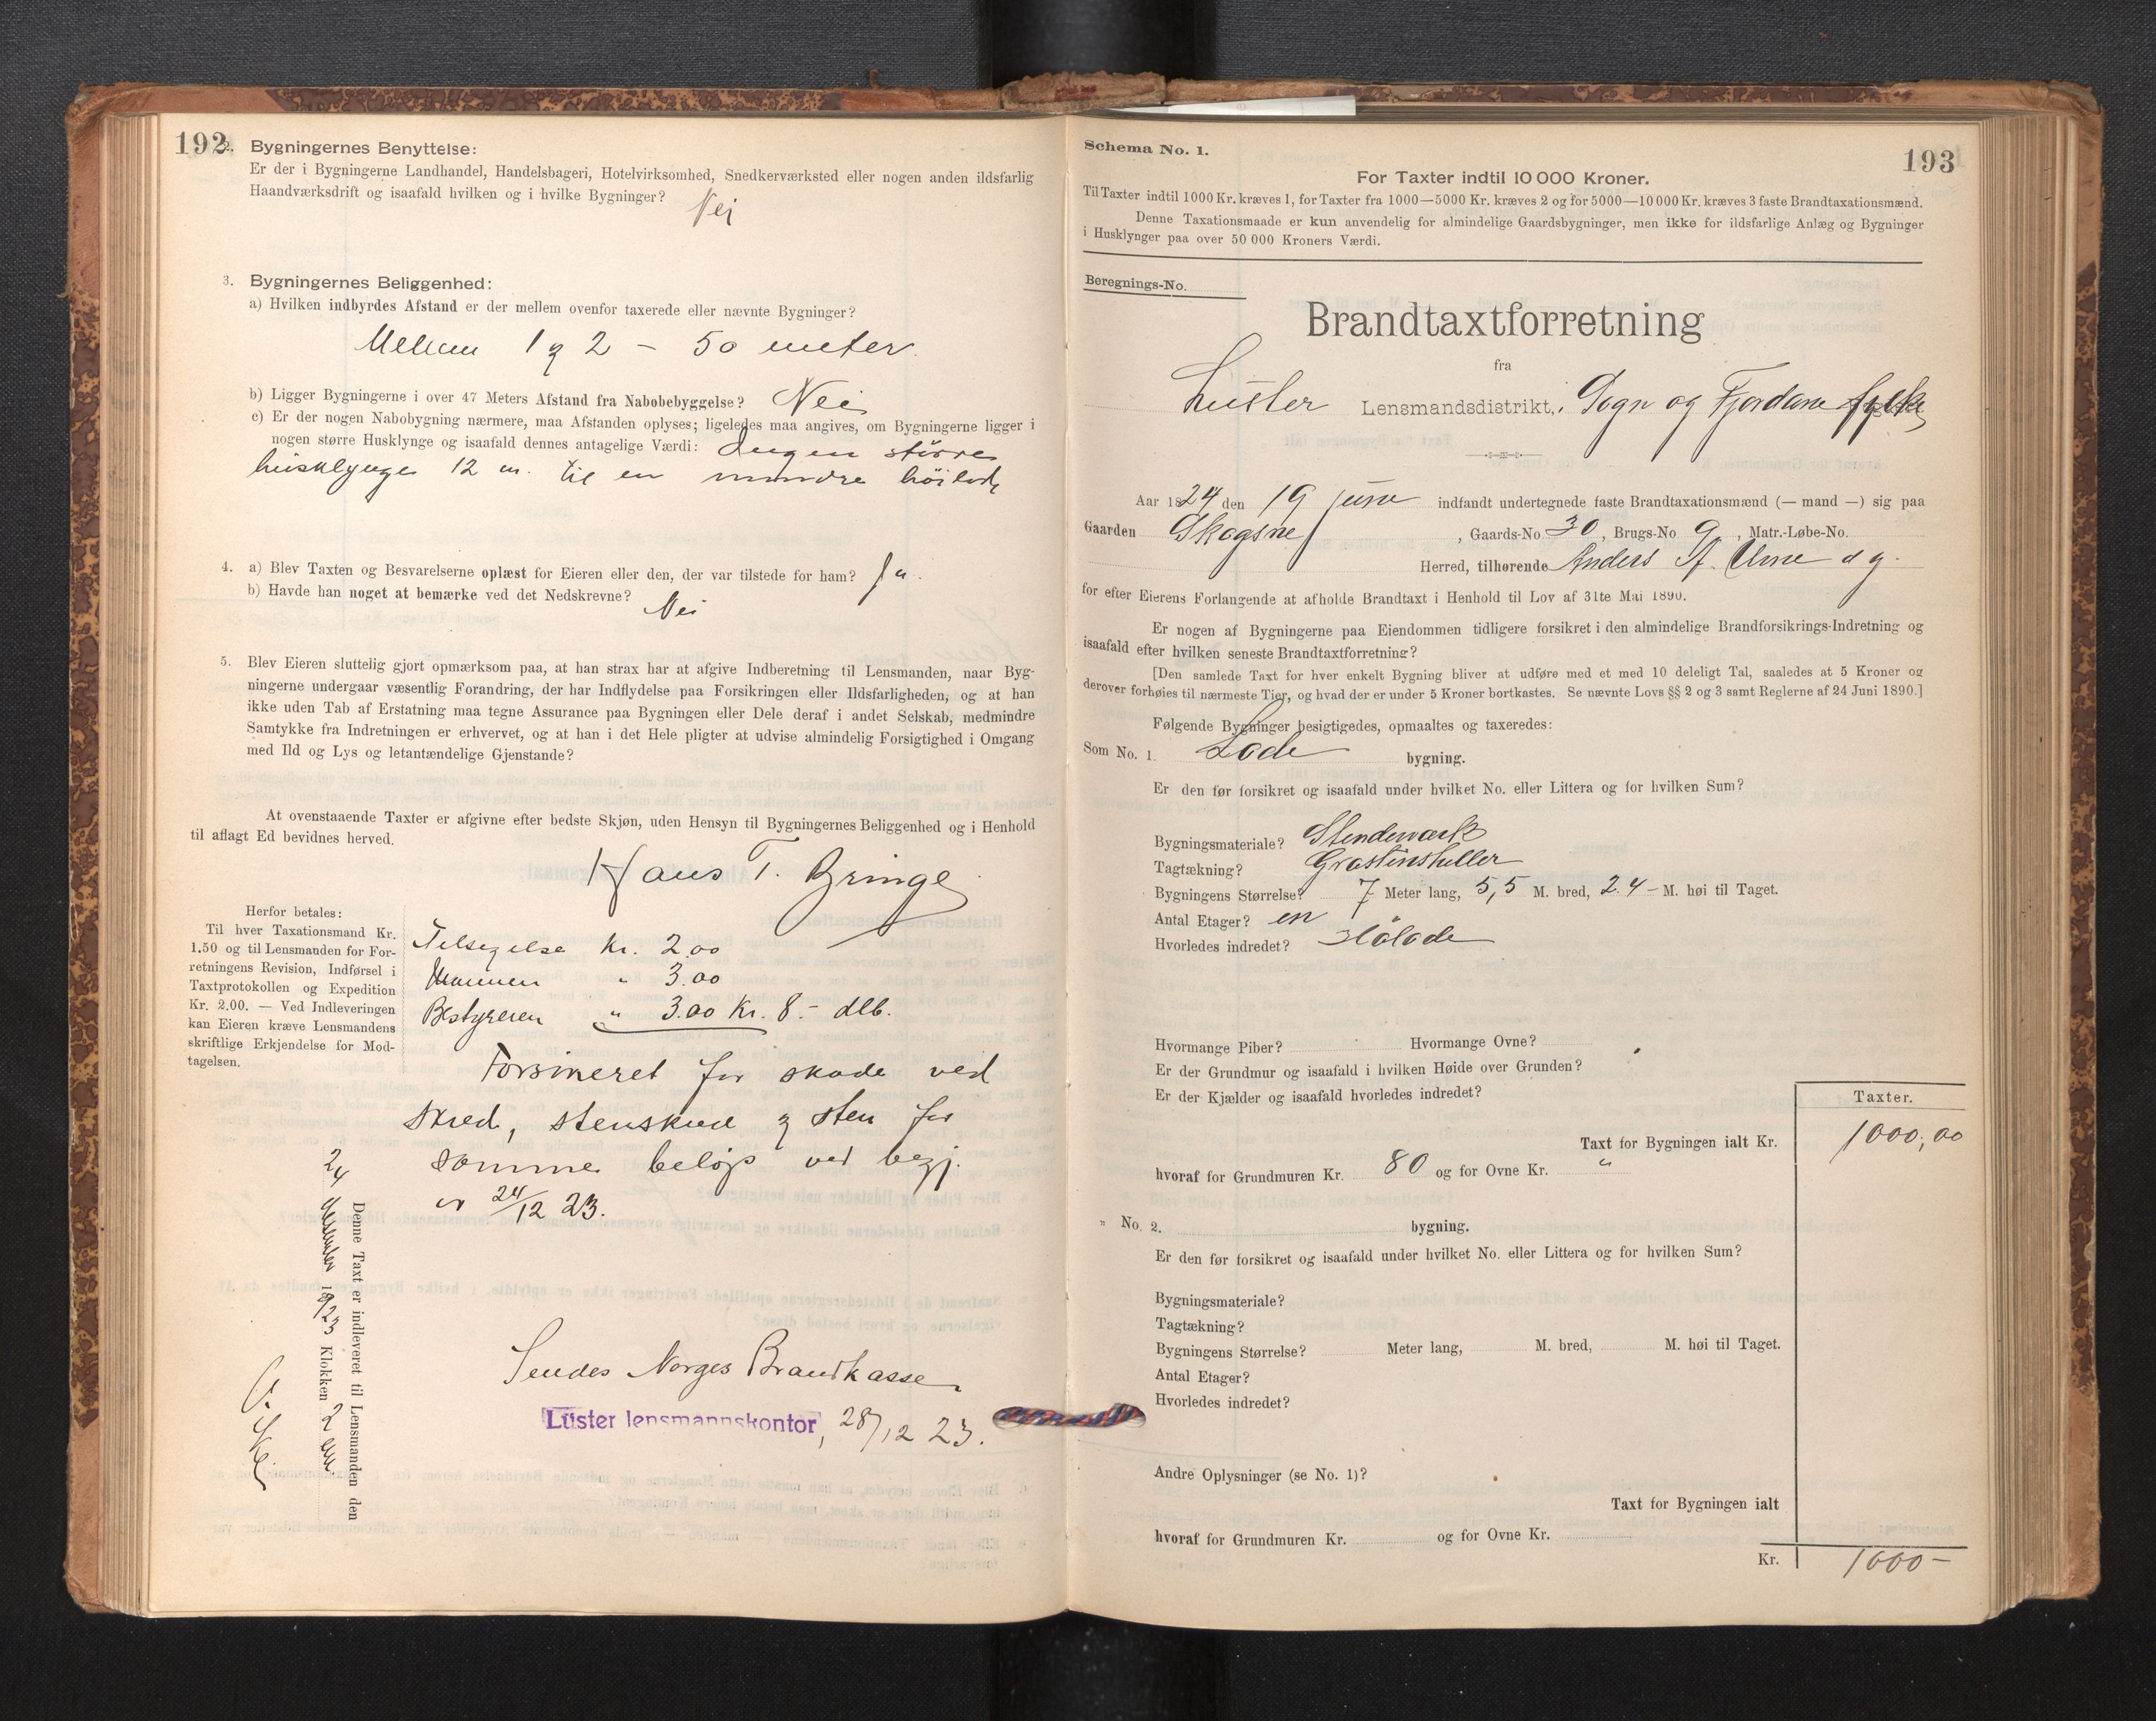 192
2. Bygningernes Benyttelse:
Er der i Bygningerne Landhandel, Handelsbageri, Hotelvirksomhed, Snedkerværksted eller nogen anden ildsfarlig
Haandværksdrift og isaafald hvilken og i hvilke Bygninger? Nei
3. Bygningernes Beliggenhed:
a) Hvilken indbyrdes Afstand er der mellem ovenfor taxerede eller nævnte Bygninger?
Mellem 1 og 2 – 50 meter.
b) Ligger Bygningerne i over 47 Meters Afstand fra Nabobebyggelse? Nei
c) Er der nogen Nabobygning nærmere, maa Afstanden oplyses; ligeledes maa angives, om Bygningerne ligger i
nogen større Husklynge og isaafald dennes antagelige Værdi: Ingen større
husklynge 12 m. til en mindre höilade
4. a) Blev Taxten og Besvarelserne oplæst for Eieren eller den, der var tilstede for ham? Ja.
b) Havde han noget at bemærke ved det Nedskrevne? Nei
5. Blev Eieren sluttelig gjort opmærksom paa, at han strax har at afgive Indberetning til Lensmanden, naar Byg-
ningerne undergaar væsentlig Forandring, der har Indflydelse paa Forsikringen eller Ildsfarligheden, og at han
ikke uden Tab af Erstatning maa tegne Assurance paa Bygningen eller Dele deraf i andet Selskab, medmindre
Samtykke fra Indretningen er erhvervet, og at han i det Hele pligter at udvise almindelig Forsigtighed i Omgang
med Ild og Lys og letantændelige Gjenstande?
At ovenstaaende Taxter er afgivne efter bedste Skjøn, uden Hensyn til Bygningernes Beliggenhed og i Henhold
til aflagt Ed bevidnes herved.
Hans T. Bringe
Herfor betales:
Til hver Taxationsmand Kr.
1.50 og til Lensmanden for For-
retningens Revision, Indførsel i
Taxtprotokollen og Expedition
Kr. 2.00. — Ved Indleveringen
kan Eieren kræve Lensmandens
skriftlige Erkjendelse for Mod-
tagelsen.
Tilsigelse Kr. 2.00
Mannen " 3.00
Bestyreren " 3.00 Kr. 8.- dlb.
Forsikret for skade ved
skred, stenskred og sten for
samme beløp ved begj.
av 24/12 23.
Denne Taxt er indleveret til Lensmanden den
24 desember 1923 Klokken 2 em
Sendes Norges Brandkasse
Luster lensmannskontor, 28/12 23.
Schema No. 1.
193
For Taxter indtil 10 000 Kroner.
Til Taxter indtil 1000 Kr. kræves 1, for Taxter fra 1000—5000 Kr. kræves 2 og for 5000—10 000 Kr. kræves 3 faste Brandtaxationsmænd.
Denne Taxationsmaade er kun anvendelig for almindelige Gaardsbygninger, men ikke for ildsfarlige Anlæg og Bygninger
i Husklynger paa over 50 000 Kroners Værdi.
Beregnings-No.
Brandtaxtforretning
fra
Luster Lensmandsdistrikt, Sogn og Fjordane fylke
Aar 1824 den 19 juni indfandt undertegnede faste Brandtaxationsmænd (— mand —) sig paa
Gaarden Skogsne, Gaards-No. 30, Brugs-No 9, Matr.-Løbe-No.
Herred, tilhørende Anders A.
for efter Eierens Forlangende at afholde Brandtaxt i Henhold til Lov af 31te Mai 1890.
Er nogen af Bygningerne paa Eiendommen tidligere forsikret i den almindelige Brandforsikrings-Indretning og
isaafald efter hvilken seneste Brandtaxtforretning?
[Den samlede Taxt for hver enkelt Bygning bliver at udføre med et med 10 deleligt Tal, saaledes at 5 Kroner og
derover forhøies til nærmeste Tier, og hvad der er under 5 Kroner bortkastes. Se nævnte Lovs §§ 2 og 3 samt Reglerne af 24 Juni 1890.]
Følgende Bygninger besigtigedes, opmaaltes og taxeredes:
Som No. 1. Lade bygning.
Er den før forsikret og isaafald under hvilket No. eller Littera og for hvilken Sum?
Bygningsmateriale? Stenderværk
Tagtækning? Grastinsheller
Bygningens Størrelse? 7 Meter lang, 5,5 M. bred, 2.4 – M. høi til Taget.
Antal Etager? en
Hvorledes indredet? Hölade
Hvormange Piber? Hvormange Ovne?
Er der Grundmur og isaafald i hvilken Høide over Grunden?
Er der Kjælder og isaafald hvorledes indredet?
Taxter.
Taxt for Bygningen ialt Kr. 1000,00
hvoraf for Grundmuren Kr. 80 og for Ovne Kr. "
" No. 2. bygning.
Er den før forsikret og isaafald under hvilket No. eller Littera og for hvilken Sum?
Bygningsmateriale?
Tagtækning?
Bygningens Størrelse? Meter lang, M. bred, M. høi til Taget.
Antal Etager?
Hvorledes indredet?
Andre Oplysninger (se No. 1)?
Taxt for Bygningen ialt
hvoraf for Grundmuren Kr. og for Ovne Kr.
Kr. 1000 –